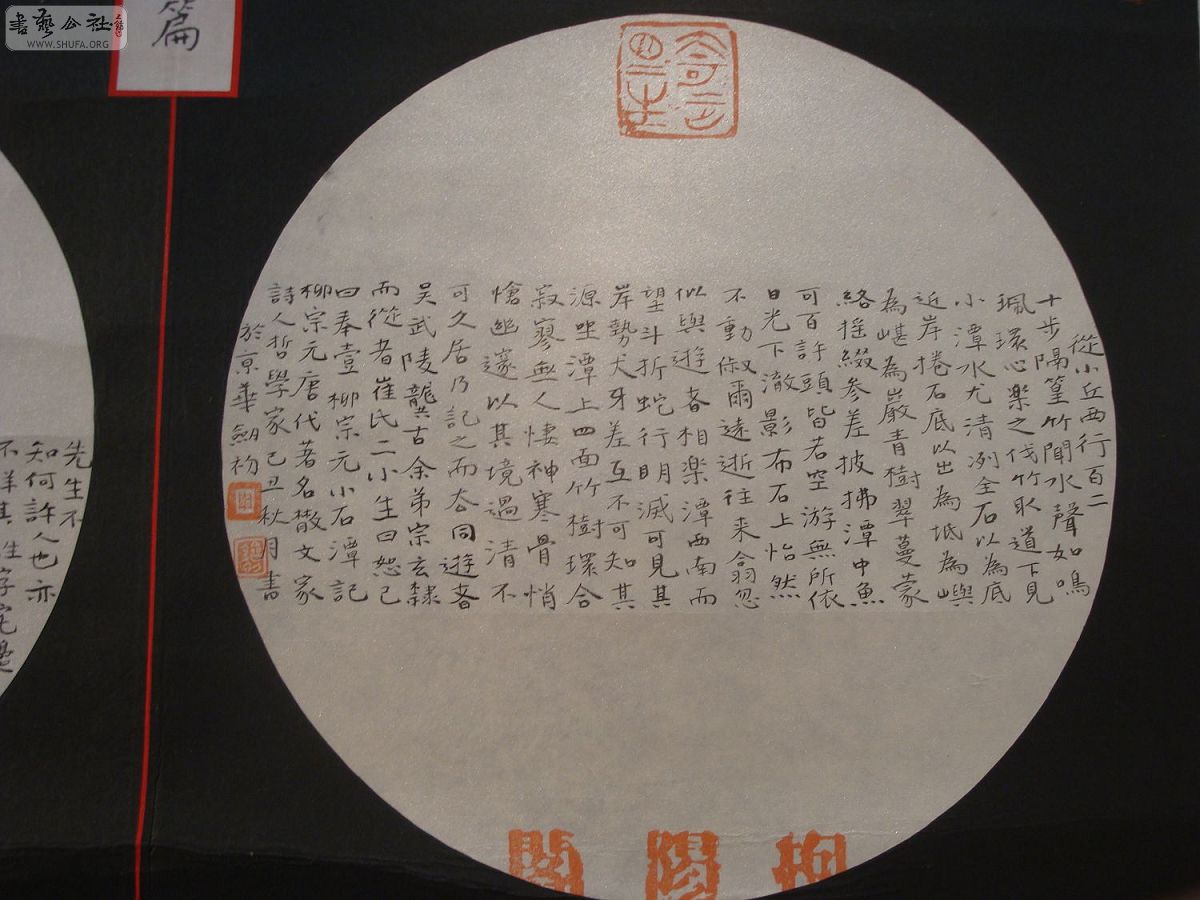 書藝公社
WWW.SHUFA.ORG
篇
從小丘西行百二
十步隔篁竹聞水聲如鳴
珮環心楽之伐竹取道下見
小潭水尤清冽全石以為底
近岸捲石底以出為坻為嶼
為嵁為巖青樹翠蔓蒙
絡搖綴參差披拂潭中魚
可百許頭皆若空游無所依
日光下澈影布石上怡然
不動俶爾遠逝往来翕忽
似與遊者相楽潭西南而
望斗折蛇行明滅可見其
岸勢犬牙差互不可知其
源坐潭上四面竹樹環合
寂寥無人悽神寒骨悄
愴幽邃以其境過清不
可久居乃記之而去同遊者
吴武陵龔古余弟宗玄隸
而從者崔氏二小生曰恕己
曰奉壹柳宗元小石潭記
柳宗元唐代著名散文家
詩人哲學家己丑秋月書
於京華劍
先生不
知何許人也亦
不詳其姓字宅邊